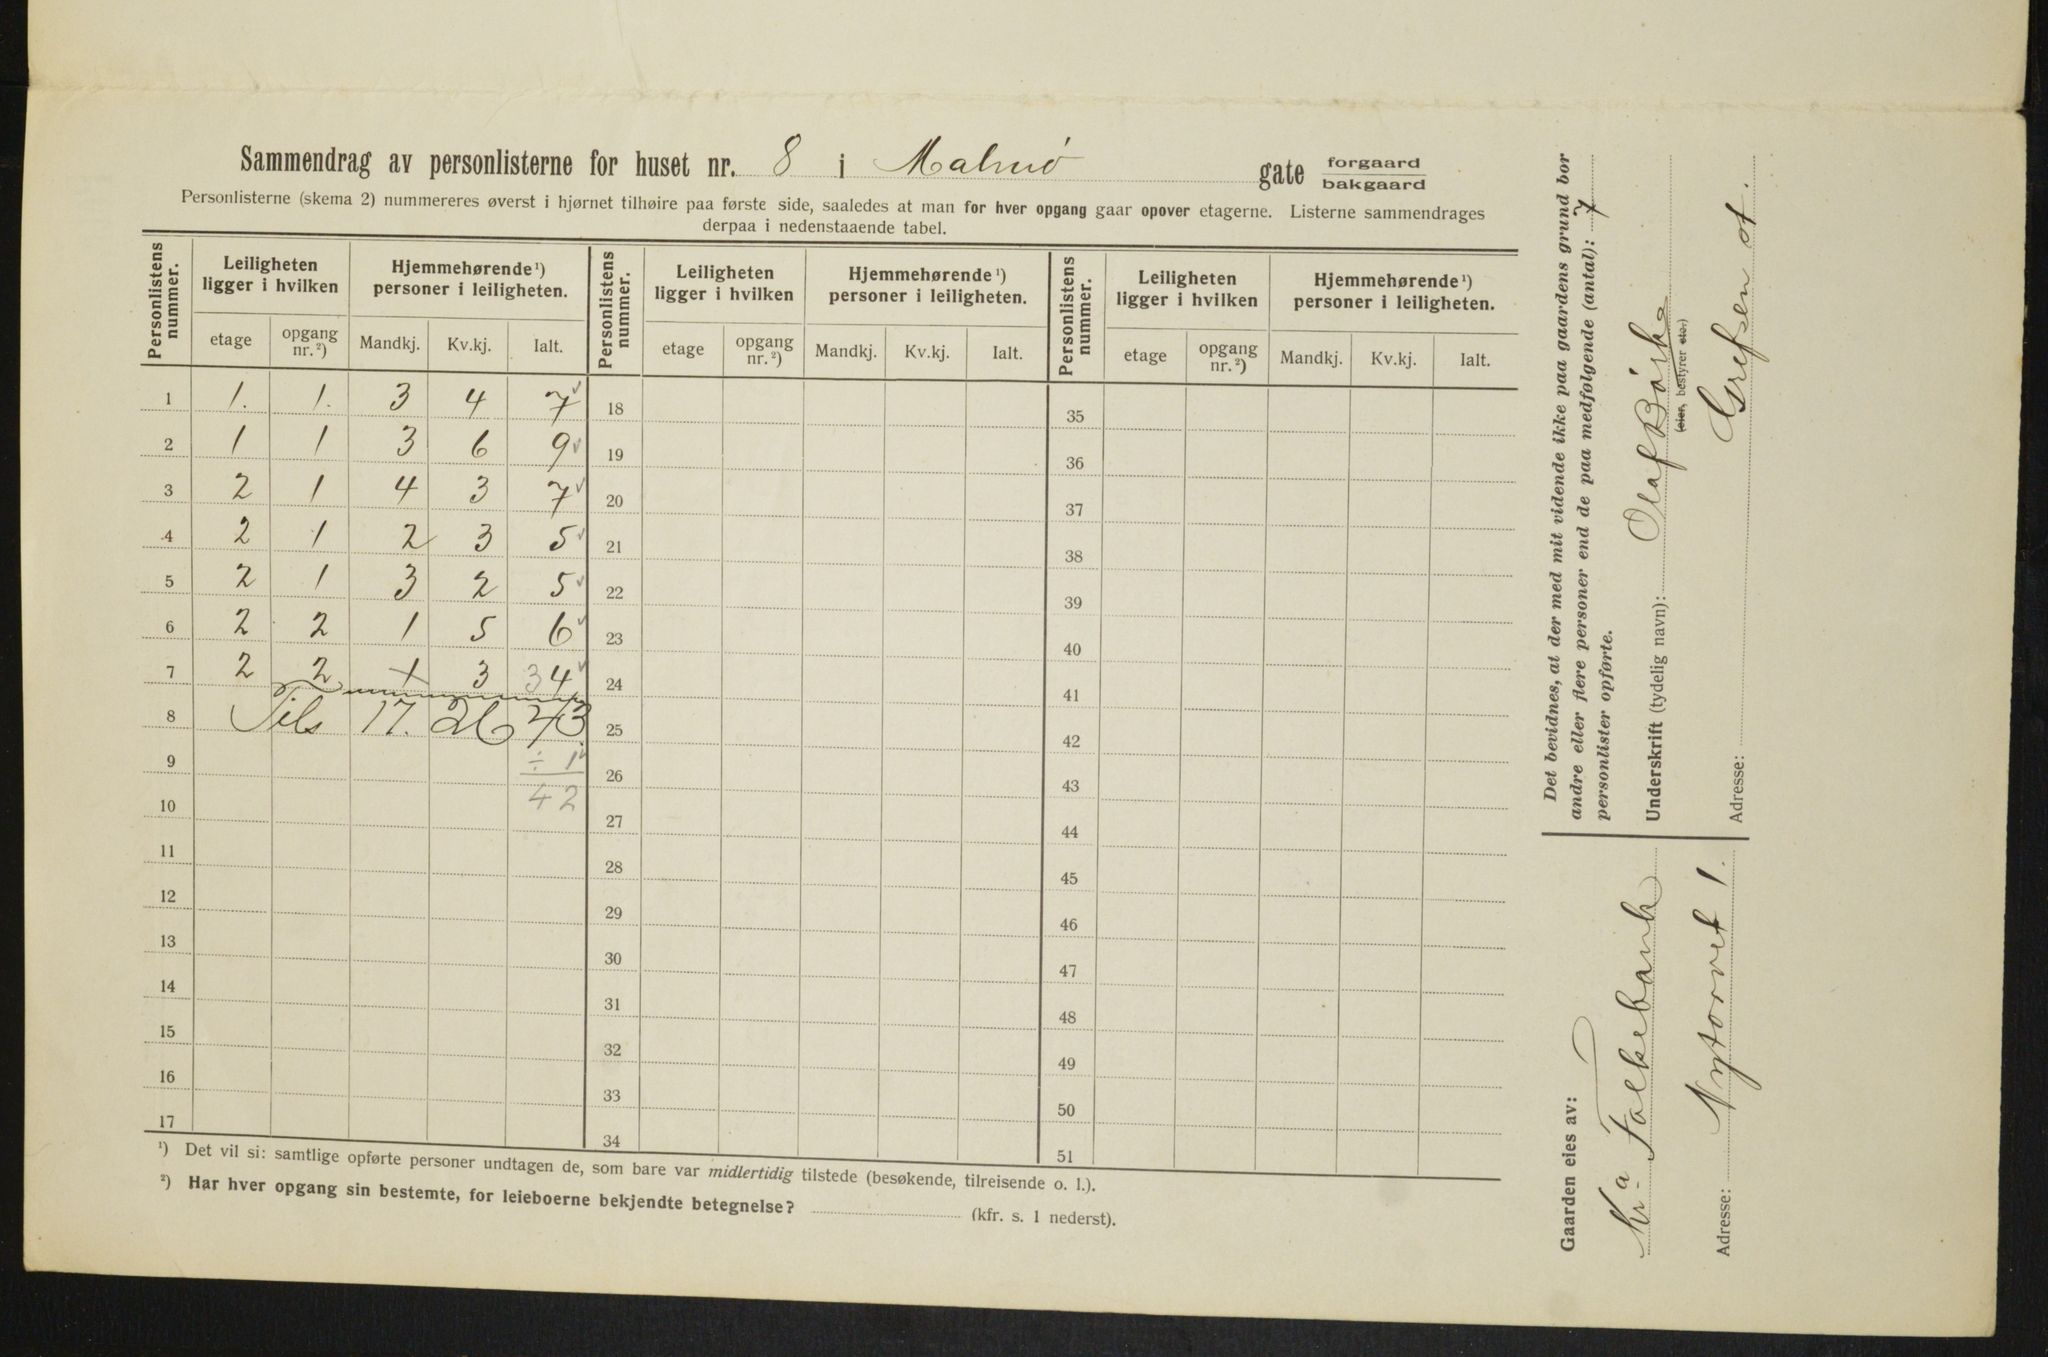 Sammendrag av personlisterne for huset nr. 8 i Malmö gate forgaard bakgaard
Personlisterne (skema 2) nummereres øverst i hjørnet tilhøire paa første side, saaledes at man for hver opgang gaar opover etagerne. Listerne sammendrages
derpaa i nedenstaaende tabel.
Personlistens nummer. Leiligheten ligger i hvilken Hjemmehørende ¹) personer i leiligheten. Personlistens nummer. Leiligheten ligger i hvilken Hjemmehørende ¹) personer i leiligheten. Personlistens nummer. Leiligheten ligger i hvilken Hjemmehørende ¹) personer i leiligheten.
etage opgang nr. ²) Mandkj. Kv.kj. Ialt. etage opgang nr. ²) Mandkj. Kv.kj. Ialt. etage opgang nr. ²) Mandkj. Kv.kj. Ialt.
1 1. 1. 3 4 7 18 35
2 1 1 3 6 9 19 36
3 2 1 4 3 7 20 37
4 2 1 2 3 5 21 38
5 2 1 3 2 5 22 39
6 2 2 1 5 6 23 40
7 2 2 1 3 3 4 24 41
8 Tils 17. 26 43. 25 42
9 ÷ 1 26 43
10 42 27 44
11 28 45
12 29 46
13 30 47
14 31 48
15 32 49
16 33 50
17 34 51
¹) Det vil si: samtlige opførte personer undtagen de, som bare var midlertidig tilstede (besøkende, tilreisende o. l.).
²) Har hver opgang sin bestemte, for leieboerne bekjendte betegnelse? (kfr. s. 1 nederst).
Det bevidnes, at der med mit vidende ikke paa gaardens grund bor
andre eller flere personer end de paa medfølgende (antal): 7
personlister opførte.
Underskrift (tydelig navn): Olaf Börke
(eier, bestyrer etc.)
Adresse: Grefsen st.
Gaarden eies av:
Kra Folkebank
Adresse: Nytorvet 1.